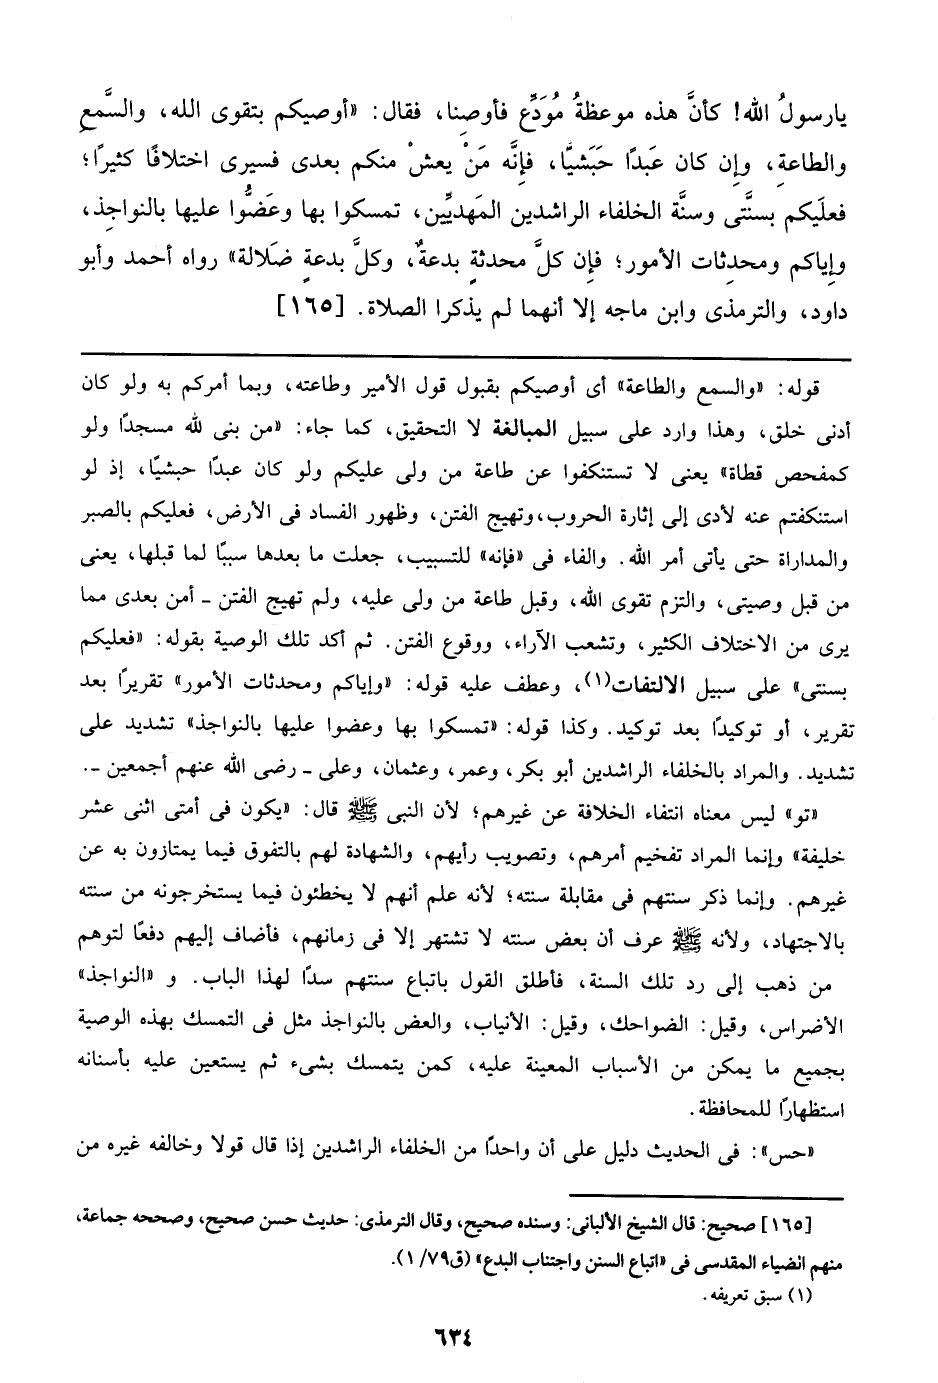 يارسولُ الله! كأنَّ هذه موعظةُ مُوَدِّع فأوصِنا، فقال: «أوصيكم بتقوى الله، والسَّمعِ
والطاعةِ، وإن كان عَبدًا حَبَشيَّا، فإنَّه مَنْ يعشْ منكم بعدى فسيرى اختلافًا كثيرًا؛
فعلَيكم بسنَّتى وسنَّة الخلفاء الراشدين المَهديِّين، تمسكوا بها وعَضُّوا عليها بالنواجِذ،
وإياكم ومحدثات الأمور؛ فإن كلَّ محدثةٍ بدعةٌ، وكلَّ بدعةٍ ضَلالة» رواه أحمد وأبو
داود، والترمذى وابن ماجه إلا أنهما لم يذكرا الصلاة. [١٦٥]
قوله: «والسمع والطاعة» أى أوصيكم بقبول قول الأمير وطاعته، وبما أمركم به ولو كان
أدنى خلق، وهذا وارد على سبيل المبالغة لا التحقيق، كما جاء: «من بنى لله مسجدًا ولو
كمفحص قطاة» يعنى لا تستنكفوا عن طاعة من ولى عليكم ولو كان عبدًا حبشيًا، إذ لو
استنكفتم عنه لأدى إلى إثارة الحروب،وتهيج الفتن، وظهور الفساد فى الأرض، فعليكم بالصبر
والمداراة حتى يأتى أمر الله. والفاء فى «فإنه» للتسبيب، جعلت ما بعدها سببًا لما قبلها، يعنى
من قبل وصيتى، والتزم تقوى الله، وقبل طاعة من ولى عليه، ولم تهيج الفتن ـ أمن بعدى مما
يرى من الاختلاف الكثير، وتشعب الآراء، ووقوع الفتن. ثم أكد تلك الوصية بقوله: «فعليكم
بسنتى» على سبيل الالتفات(١)، وعطف عليه قوله: «وإياكم ومحدثات الأمور» تقريرًا بعد
تقرير، أو توكيدًا بعد توكيد. وكذا قوله: «تمسكوا بها وعضوا عليها بالنواجذ» تشديد على
تشديد. والمراد بالخلفاء الراشدين أبو بكر، وعمر، وعثمان، وعلى ـ رضى الله عنهم أجمعين ـ.
«تو» ليس معناه انتفاء الخلافة عن غيرهم؛ لأن النبى ﷺ قال: «يكون فى أمتى اثنى عشر
خليفة» وإنما المراد تفخيم أمرهم، وتصويب رأيهم، والشهادة لهم بالتفوق فيما يمتازون به عن
غيرهم. وإنما ذكر سنتهم فى مقابلة سنته؛ لأنه علم أنهم لا يخطئون فيما يستخرجونه من سنته
بالاجتهاد، ولأنه ﷺ عرف أن بعض سنته لا تشتهر إلا فى زمانهم، فأضاف إليهم دفعًا لتوهم
من ذهب إلى رد تلك السنة، فأطلق القول باتباع سنتهم سدًا لهذا الباب. و «النواجذ»
الأضراس، وقيل: الضواحك، وقيل: الأنياب، والعض بالنواجذ مثل فى التمسك بهذه الوصية
بجميع ما يمكن من الأسباب المعينة عليه، كمن يتمسك بشىء ثم يستعين عليه بأسنانه
استظهارًا للمحافظة.
«حس»: فى الحديث دليل على أن واحدًا من الخلفاء الراشدين إذا قال قولا وخالفه غيره من
[١٦٥] صحيح: قال الشيخ الألبانى: وسنده صحيح، وقال الترمذى: حديث حسن صحيح، وصححه جماعة،
منهم الضياء المقدسى فى «اتباع السنن واجتناب البدع» (ق٧٩/ ١).
(١) سبق تعريفه.
٦٣٤